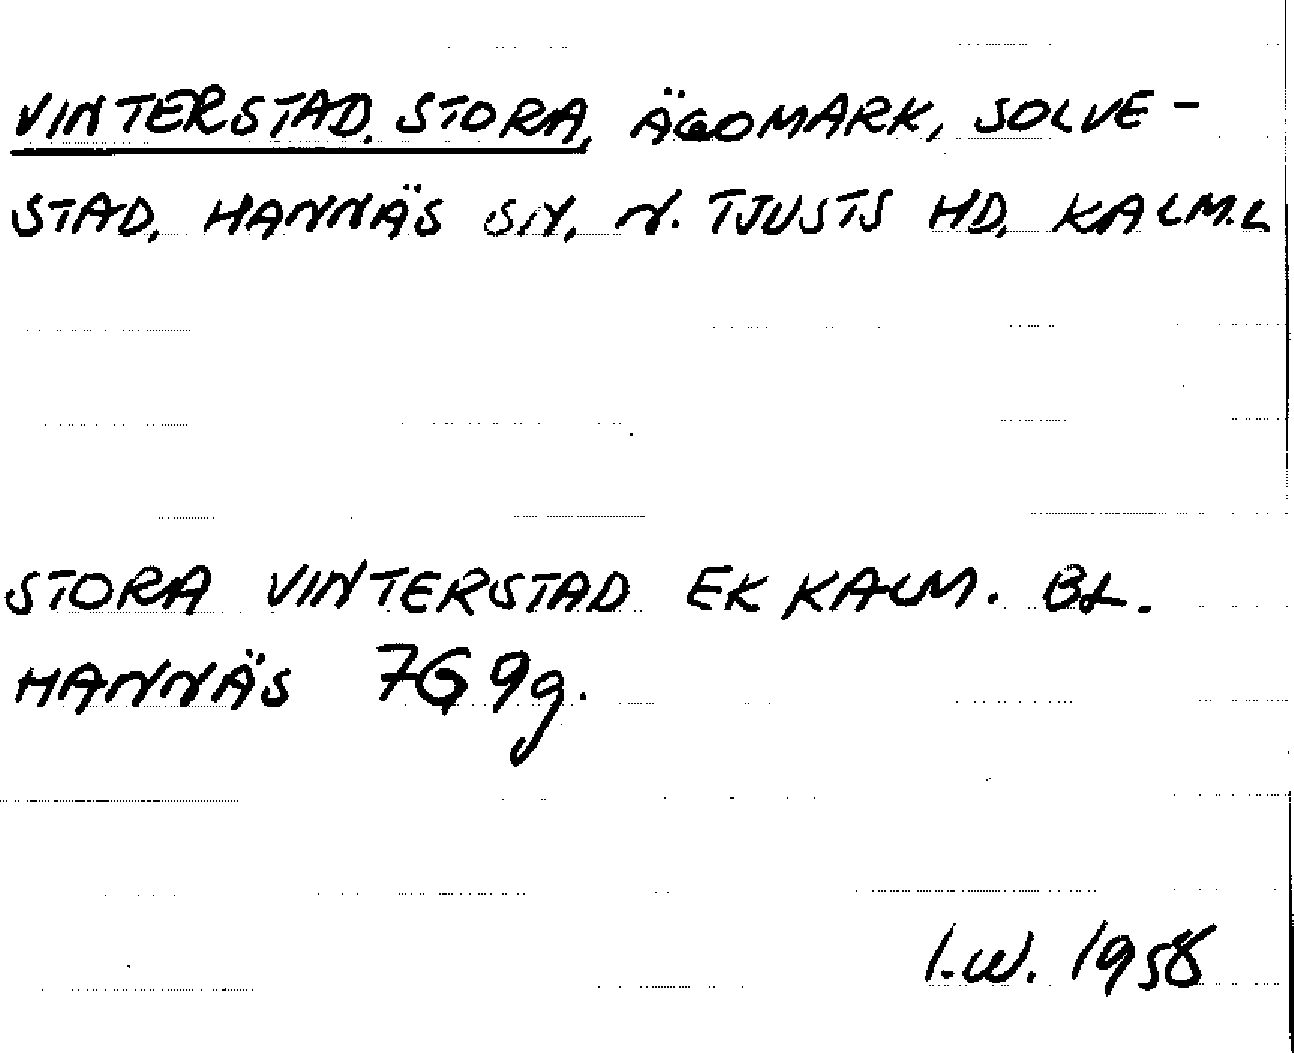 VINTERSTAD, STORA, ÄGOMARK, SOLVE-
STAD, HANNÄS SN, N. TJUSTS HD, KALM.L
STORA VINTERSTAD EK KALM. BL.
HANNÄS 7G 9g.
I.W. 1958